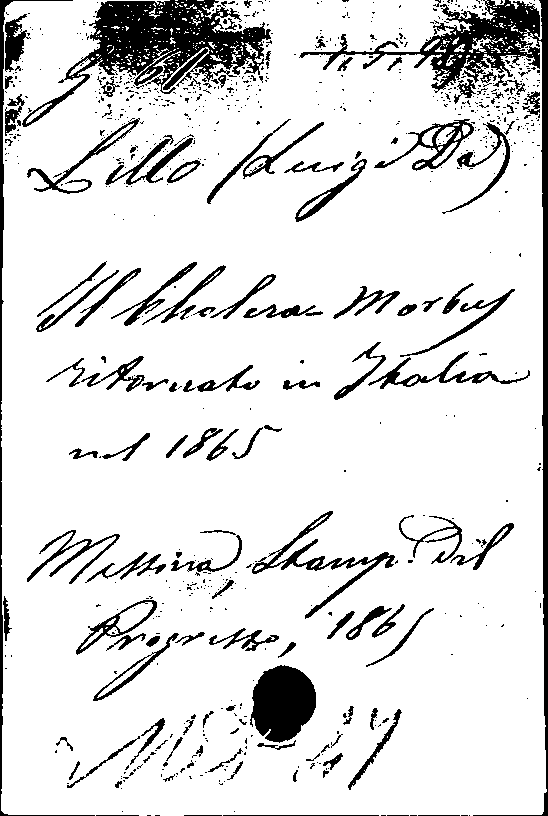 G 61
Lillo (Luigi Da)
Il Cholera Morbus
ritornato in Italia
nel 1865
Messina, Stamp. del
Progresso, 1865